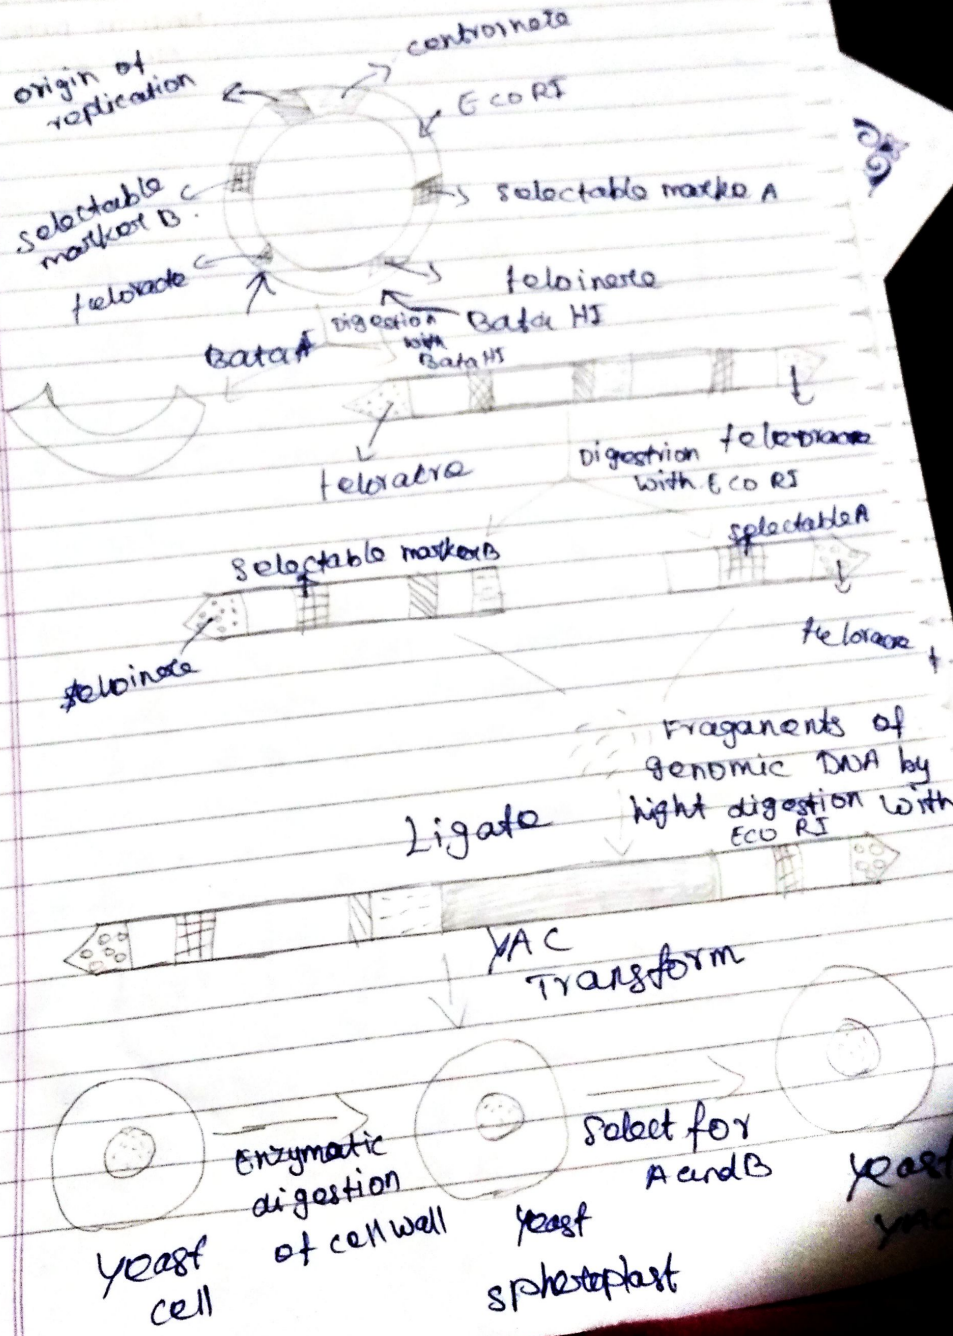 controinete
origin of
replication
ECORI
selectable
marker B.
selectable marke A
telorade
teloinere
Digestion
with
Bata HI
Bata HI
teloratre
Digestrion
with ECO RI
selectable A
selectable markerB
teloinete
telorace
Fraganents of
genomic DNA by
light digestion with
ECO RI
Ligate
YAC
Transform
Enzymatic
digestion
of cell wall
Select for
A and B
Yeast
cell
yeast
spheroplast
yeast
YAC